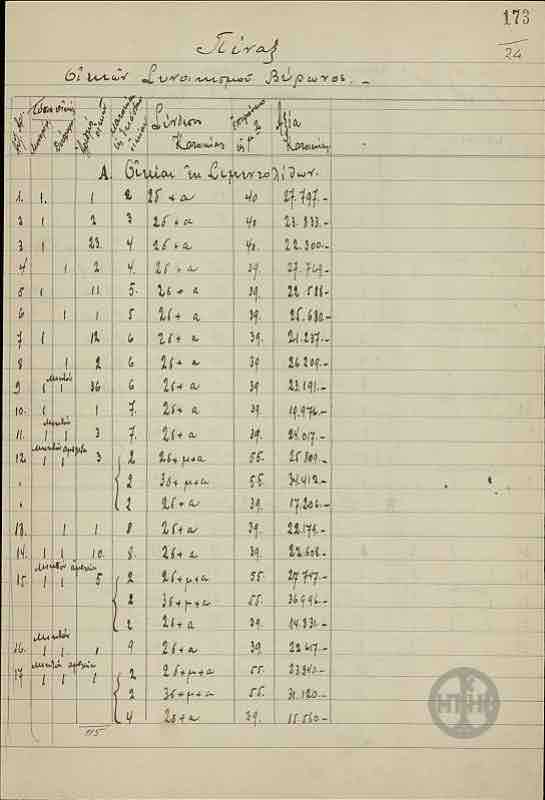 173
24
Πίναξ
Οἰκιῶν Συνοικισμοῦ Βύρωνος. –
Σύνθεσις Κατοικίας
Ἀξία Κατοικίας
Α. Οἰκίαι ἐκ Σιμεντολίθων.
1. 1. 1 2 2δ+α 40 27.797.-
2 1 2 3 2δ+α 40 23.833.-
3 1 23. 4 2δ+α 40. 22.300.-
4 1 2 4. 2δ+α 39. 27.749.-
5 1 11 5. 2δ+α 39. 22.588-
6 1 1 5 2δ+α 39. 25.680.-
7 1 12 6 2δ+α 39. 21.237.-
8 1 2 6 2δ+α 39 26.209.-
9 μικτόν 1 1 36 6 2δ+α 39 23.191.-
10. 1 1 7. 2δ+α 39. 19.976.-
11. μικτόν 1 1 3 7. 2δ+α 39. 24.017.-
12. 1 1 3 2 2δ+μ+α 55. 25.809.-
2 3δ+μ+α 55. 34.412.-
2 2δ+α 39. 17.206.-
13. 1 1 8 2δ+α 39. 22.179.-
14. 1 1 10. 8. 2δ+α 39. 22.608.-
15 1 1 5 2 2δ+μ+α 55. 27.747.-
2 3δ+μ+α 55. 36.996.-
2 2δ+α 39. 14.831.-
16. μικτόν 1 1 1 9 2δ+α 39 22.617.-
17. 1 1 1 2 2δ+μ+α 55. 23.340.-
2 3δ+μ+α 55. 31.120.-
4 2δ+α 39. 15.560.-
115